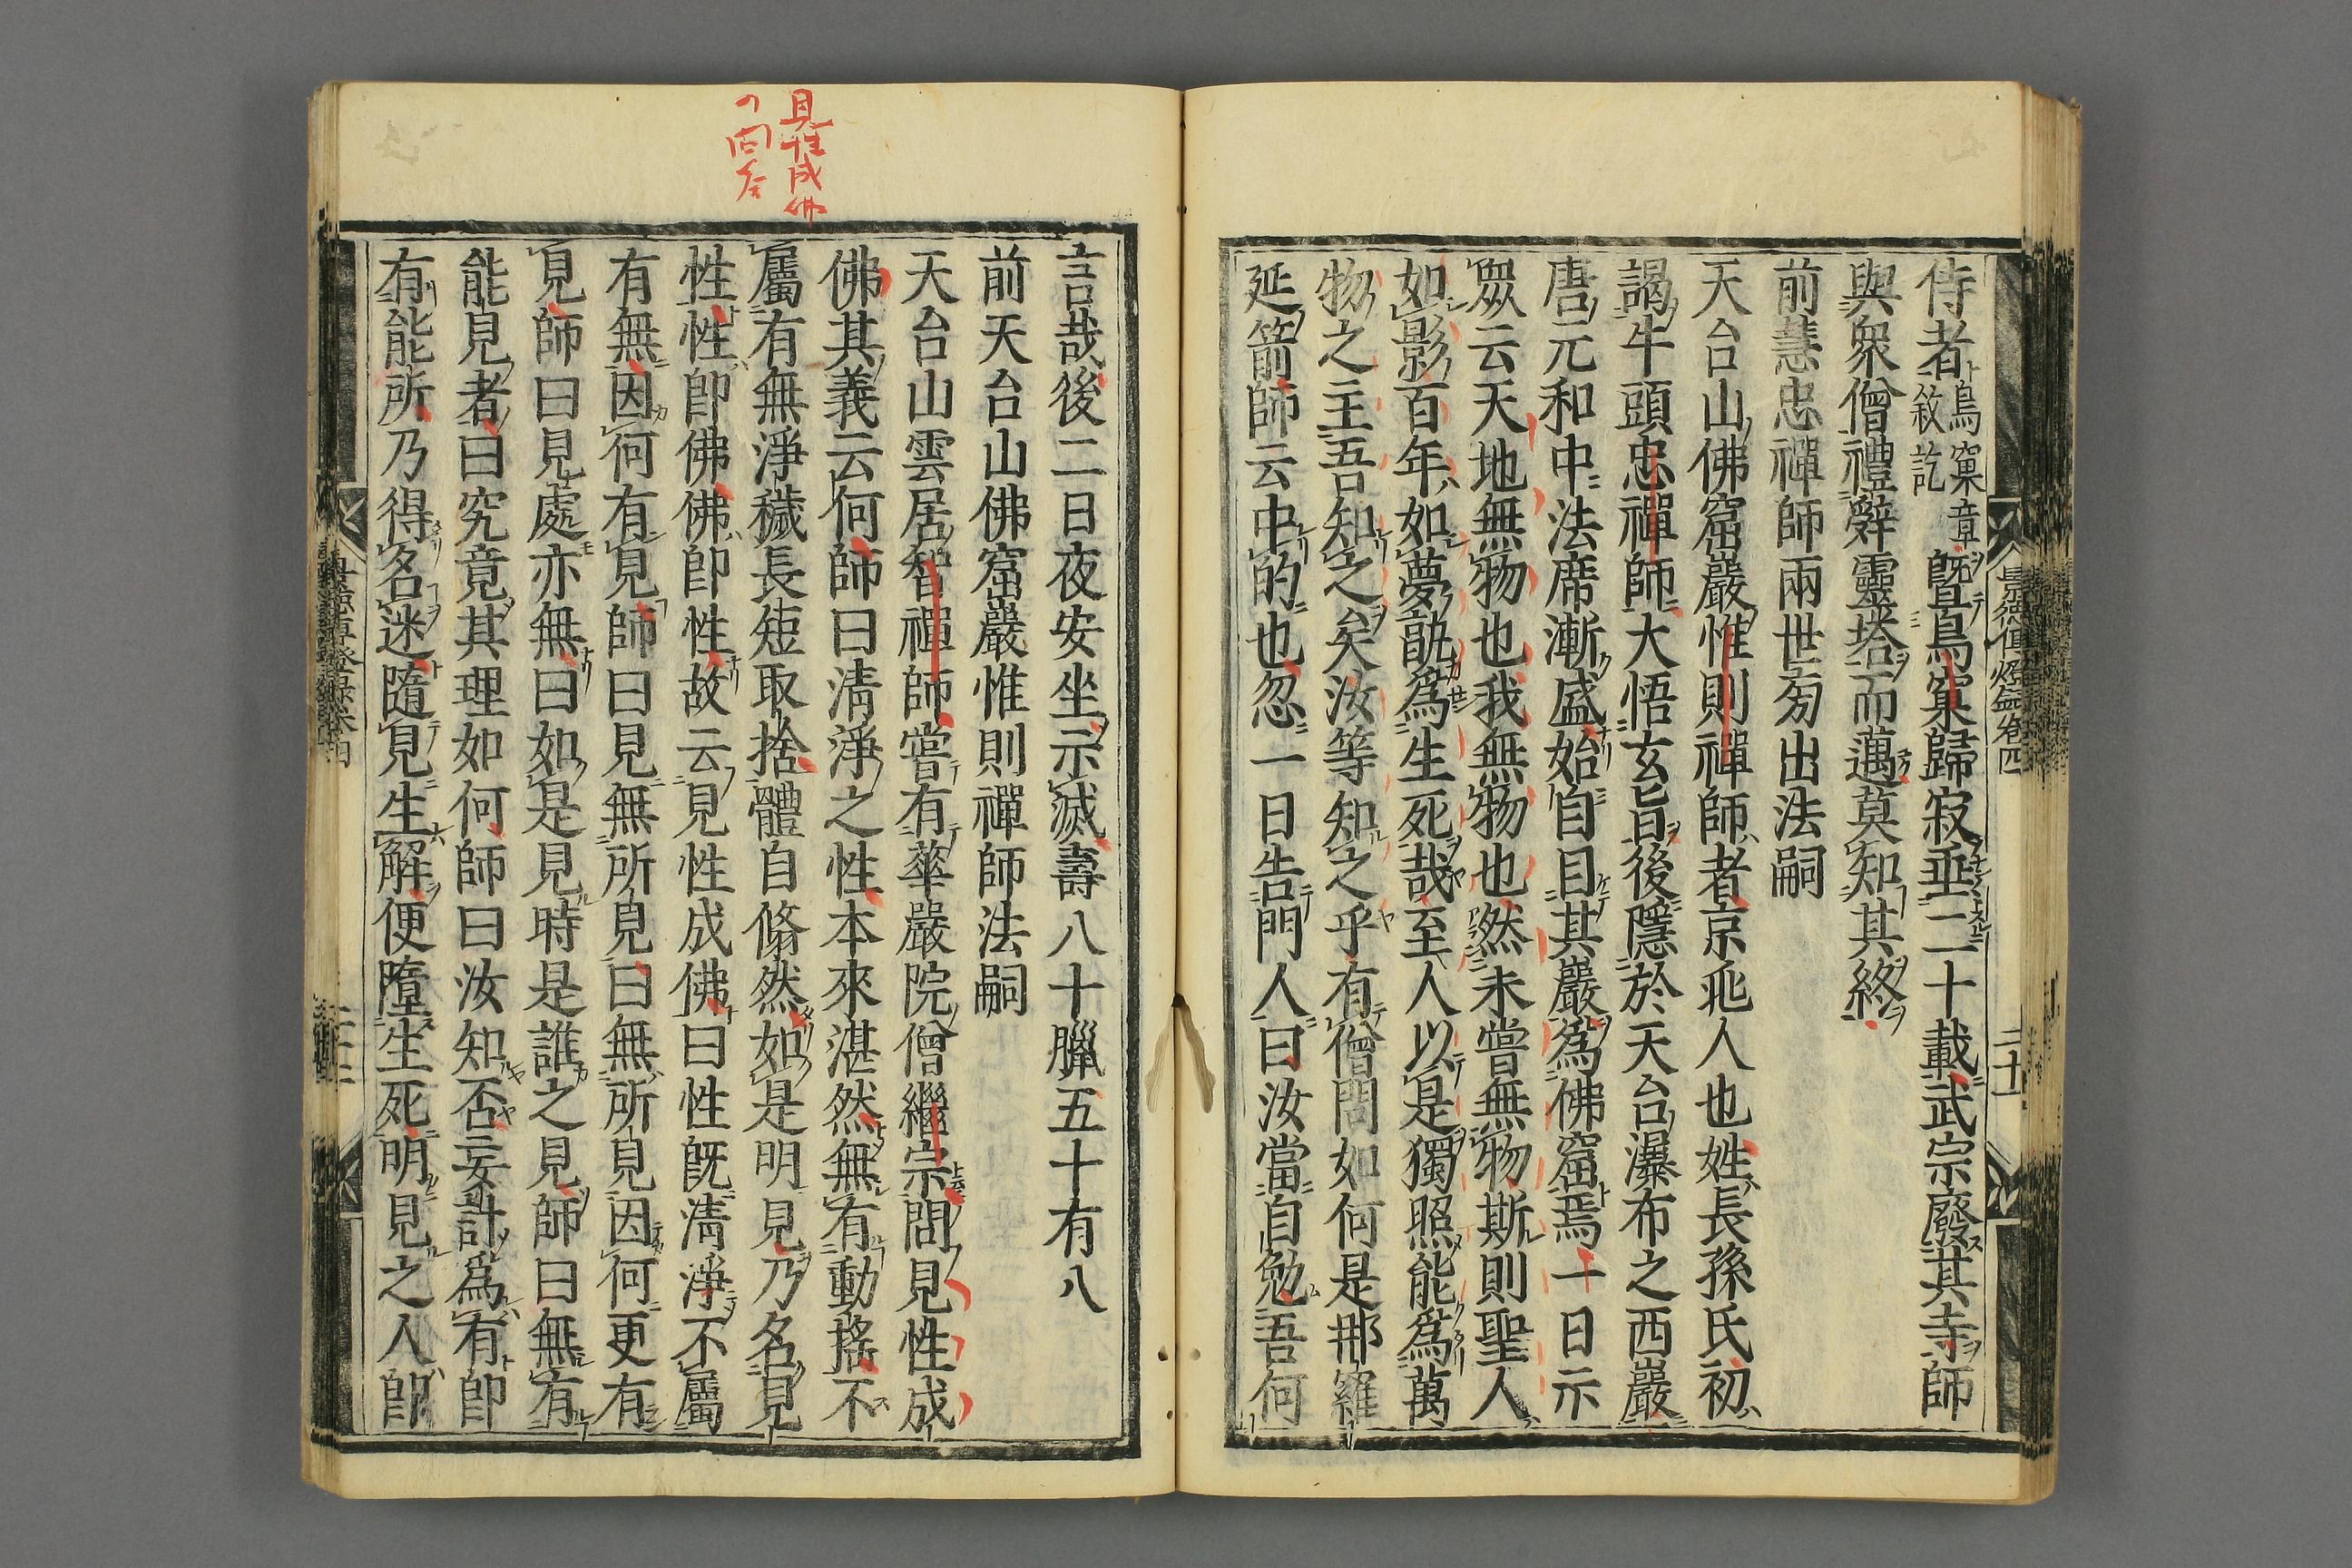 侍者鳥窠章敘訖暨鳥窠歸寂垂二十載武宗廢其寺師
與衆僧禮辭靈塔而邁莫知其終
前慧忠禪師兩世旁出法嗣
天台山佛窟巖惟則禪師者京兆人也姓長孫氏初
謁牛頭忠禪師大悟玄旨後隱於天台瀑布之西巖
唐元和中法席漸盛始自目其巖爲佛窟焉一日示
眾云天地無物也我無物也然未嘗無物斯則聖人
如影百年如夢孰爲生死哉至人以是獨照能爲萬
物之主吾知之矣汝等知之乎有僧問如何是那羅
延箭師云中的也忽一日告門人曰汝當自勉吾何
景德傳燈錄卷四
二十二
見性成佛
ノ問答
言哉後二日夜安坐示滅壽八十臘五十有八
前天台山佛窟巖惟則禪師法嗣
天台山雲居智禪師嘗有華嚴院僧繼宗問見性成
佛其義云何師曰淸淨之性本來湛然無有動搖不
屬有無淨穢長短取捨體自翛然如是明見乃名見
性性卽佛佛卽性故云見性成佛曰性旣淸淨不屬
有無因何有見師曰見無所見曰無所見因何更有
見師曰見處亦無曰如是見時是誰之見師曰無有
能見者曰究竟其理如何師曰汝知否妄計爲有卽
有能所乃得名迷隨見生解便墮生死明見之人卽